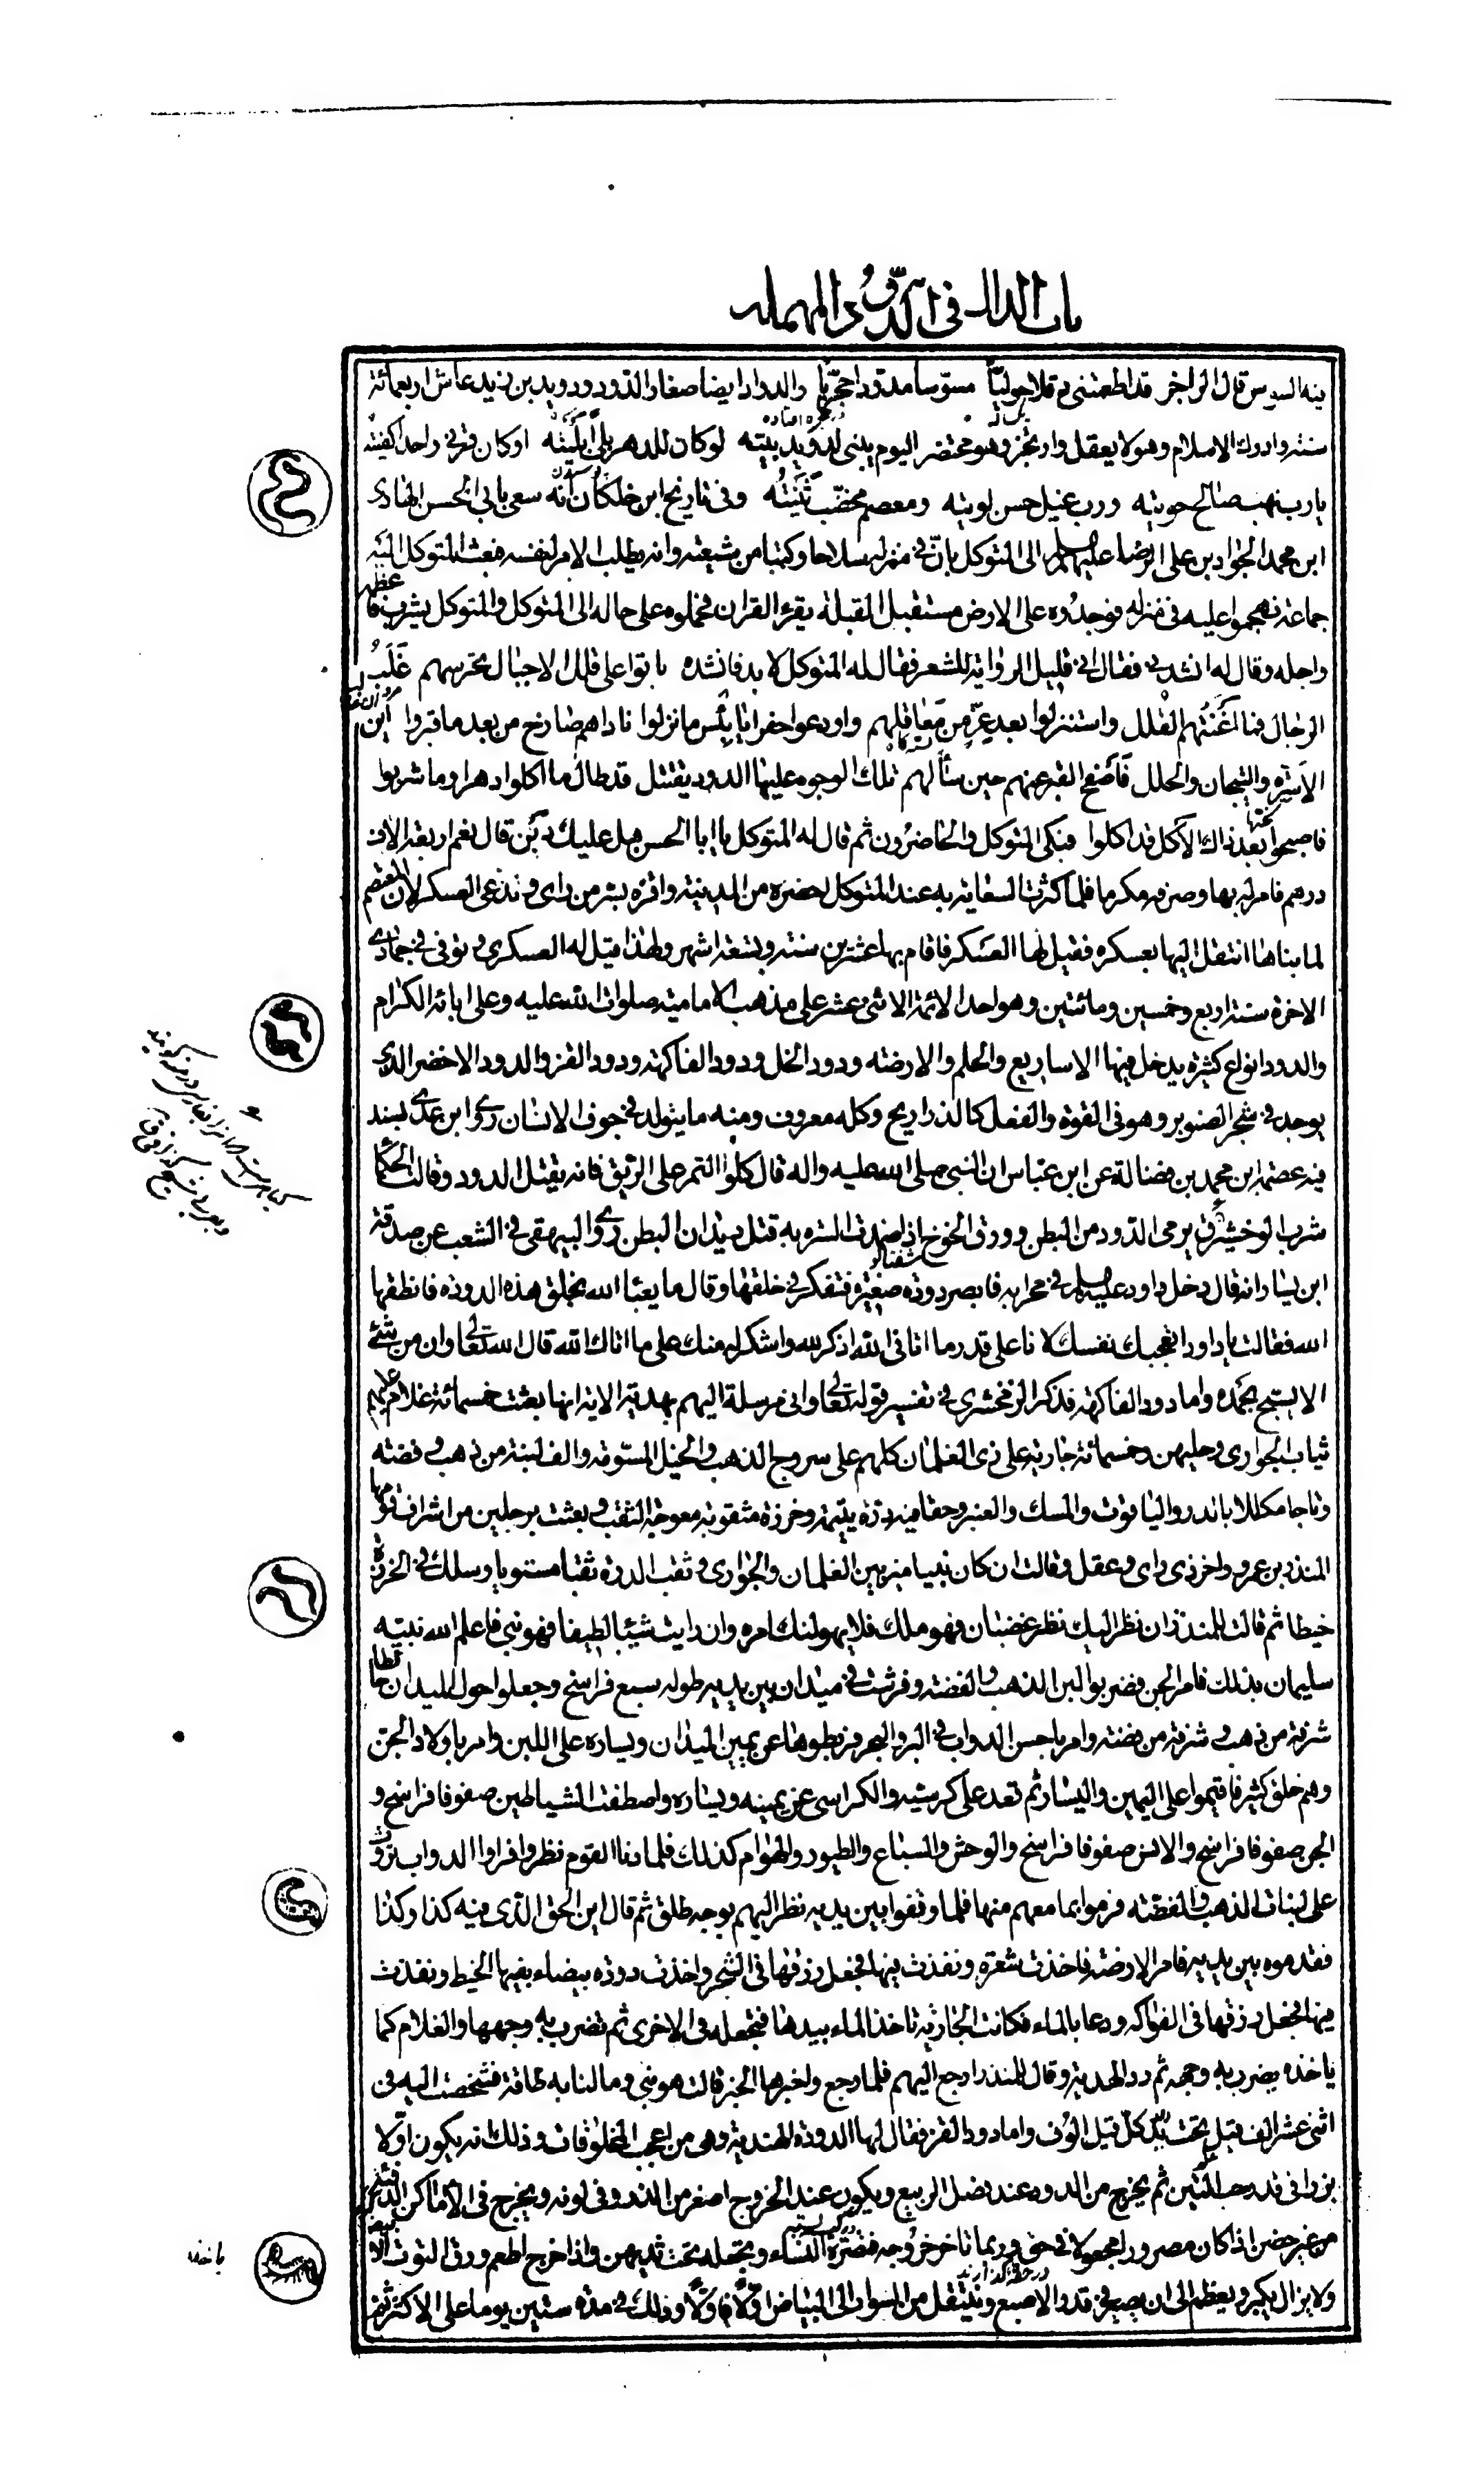 باب الدال فى الدود المهملة
فيه السوس قال الراجز قد اطعمتنى دقلا حوليّا مسوّسا مدودا حجريّا والدوادا ايضا صغار الدود ودويد بن زيد عاش اربعمائة
سنة وادرك الاسلام وهو لا يعقل وارتجز وهو محتضر اليوم يبنى لدويد بيته لو كان للدهر بلىً ابليته او كان قرنى واحدا كفيته
يا رب نهب صالح حويته ورب غيل حسن لويته ومعصم مخضّب ثنيته وفى تاريخ ابن خلكان انّه سعى بابى الحسن الهادى
ابن محمد الجواد بن على الرضا عليهم السلام الى المتوكل بانّ فى منزله سلاحا وكتبا من شيعته وانه يطلب الامر لنفسه فبعث المتوكل اليه
جماعة فهجموا عليه فى منزله فوجدوه على الارض مستقبل القبلة يقرء القران فحملوه على حاله الى المتوكل والمتوكل يشرب فاعظمه
واجله وقال له انشدنى فقال انى قليل الرواية للشعر فقال له المتوكل لا بد فانشده باتوا على قلل الاجبال تحرسهم غلب
الرجال فما اغنتهم القلل واستنزلوا بعد عزّ من معاقلهم واودعوا حفرا يا بئس ما نزلوا ناداهم صارخ من بعد ما قبروا اين
الاسرة والتيجان والحلل فافصح القبر عنهم حين سألهم تلك الوجوه عليها الدود يقتتل قد طال ما اكلوا دهرا وما شربوا
فاصبحوا بعد ذاك الاكل قد اكلوا فبكى المتوكل والحاضرون ثم قال له المتوكل يا ابا الحسن هل عليك دين قال نعم اربعة الاف
درهم فامر له بها وصرفه مكرما فلما كثرت السعاية به عند المتوكل احضره من المدينة واقره بسر من راى وتدعى العسكر لان المعتصم
لما بناها انتقل اليها بعسكره فقيل لها العسكر فاقام بها عشرين سنة وتسعة اشهر ولهذا قيل له العسكرى وتوفى فى جمادى
الاخرة سنة اربع وخمسين ومائتين وهو احد الائمة الاثنى عشر على مذهب الامامية صلوات الله عليه وعلى ابائه الكرام
والدود انواع كثيرة يدخل فيها الاساريع والحلم والارضة ودود الخل ودود الفاكهة ودود القز والدود الاخضر الذى
يوجد فى شجر الصنوبر وهو فى القوة والفعل كالذراريح وكله معروف ومنه ما يتولد فى جوف الانسان روى ابن عدى بسند
فيه عصمة ابن محمد بن فضالة عن ابن عباس ان النبى صلى الله عليه واله قال كلوا التمر على الريق فانه يقتل الدود وقالت الحكما
شرب الوخشيرق يرمى الدود من البطن وورق الخوخ اذا ضمدت السره به قتل ديدان البطن روى البيهقى فى الشعب عن صدقة
ابن يسار انه قال دخل داود عليه السلام فى محرابه فابصر دودة صغيرة فتفكر فى خلقتها وقال ما يعبا الله بخلق هذه الدودة فانطقها
الله فقالت يا داود اتعجبك نفسك لانا على قدر ما اتانى الله اذكر لله واشكر له منك على ما اتاك الله قال الله تعالى وان من شئ
الا يسبح بحمده واما دود الفاكهة فذكر الزمخشرى فى تفسير قوله تعالى وانى مرسلة اليهم بهدية الاية انها بعثت خمسمائة غلام عليهم
ثياب الجوارى وحليهن وخمسمائة جارية على زى الغلمان كلهم على سروج الذهب والخيل المسوّمة والف لبنة من ذهب وفضة
وتاجا مكللا بالدر والياقوت والمسك والعنبر وحقا فيه درّة يتيمة وخرزة مثقوبة معوجة الثقب وبعثت برجلين من اشراف قومها
المنذر بن عمرو واخر ذى راى وعقل وقالت ان كان نبيا ميز بين الغلمان والجوارى وثقب الدرة ثقبا مستويا وسلك فى الخرزة
خيطا ثم قالت للمنذر ان نظر اليك نظر غضبان فهو ملك فلا يهولنك امره وان رايت شيئا لطيفا فهو نبى فاعلم الله نبيه
سليمان بذلك فامر الجن فضربوا لبن الذهب والفضة وفرشت فى ميدان بين يديه طوله سبع فراسخ وجعلوا حول الميدان حائطا
شرفة من ذهب وشرفة من فضة وامر باحسن الدواب فى البر والبحر فربطوها عن يمين الميدان ويساره على اللبن وامر باولاد الجن
وهم خلق كثير فاقيموا على اليمين واليسار ثم قعد على كرسيه والكراسى عن يمينه ويساره واصطفت الشياطين صفوفا فراسخ و
الجن صفوفا فراسخ والانس صفوفا فراسخ والوحش والسباع والطيور والهوام كذلك فلما دنا القوم نظروا فراوا الدواب تروث
على لبنات الذهب والفضّة فرموا بما معهم منها فلما وقفوا بين يديه نظر اليهم بوجه طلق ثم قال اين الحق الذى فيه كذا وكذا
فقدموه بين يديه فامر الارضة فاخذت شعرة ونفذت فيها فجعل رزقها فى الشجر واخذت دودة بيضاء بفيها الخيط ونفذت
فيها فجعل رزقها فى الفواكه ودعا بالماء فكانت الجارية تاخذ الماء بيدها فتجعله فى الاخرى ثم تضرب به وجهها والغلام كما
ياخذه يضرب به وجهه ثم رد الهدية وقال للمنذر ارجع اليهم فلما رجع واخبرها الخبر قالت هو نبى وما لنا به طاقة فشخصت اليه فى
اثنى عشر الف قيل تحت يد كلّ قيل الوف واما دود القز فقال لها الدودة الهندية وهى من اعجب المخلوقات وذلك انه يكون اوّلا
بزرا فى قدر حب التين ثم يخرج من الدود عند فصل الربيع ويكون عند الخروج اصغر من الذر وفى لونه ويخرج فى الاماكن الدفئة
من غير حضن اذا كان مصرورا مجعولا فى حق وربما تاخر خروجه فتصره النساء وتجعله تحت ثديهن واذا خرج اطعم ورق التوت الابيض
ولا يزال يكبر ويعظم الى ان يصير فى قدر الاصبع وينتقل من السواد الى البياض اوّلا فاوّلا وذلك فى مدة ستين يوما على الاكثر ثم